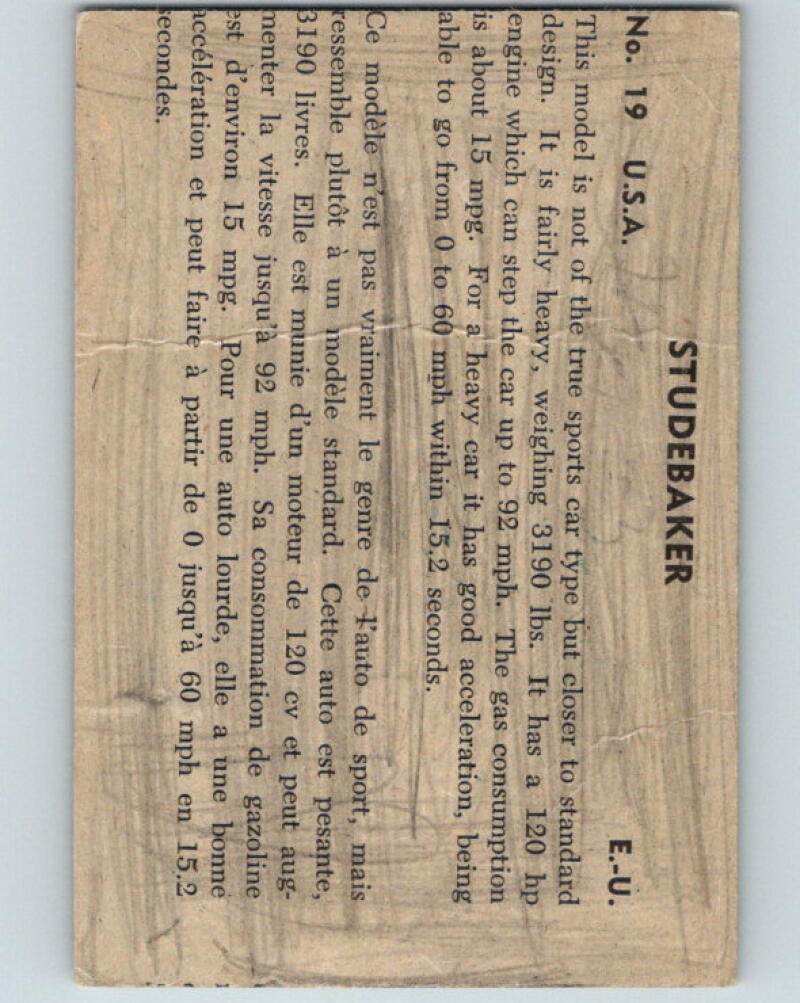 STUDEBAKER
No. 19 U.S.A. E.-U.
This model is not of the true sports car type but closer to standard
design. It is fairly heavy, weighing 3190 lbs. It has a 120 hp
engine which can step the car up to 92 mph. The gas consumption
is about 15 mpg. For a heavy car it has good acceleration, being
able to go from 0 to 60 mph within 15.2 seconds.
Ce modèle n'est pas vraiment le genre de l'auto de sport, mais
ressemble plutôt à un modèle standard. Cette auto est pesante,
3190 livres. Elle est munie d'un moteur de 120 cv et peut aug-
menter la vitesse jusqu'à 92 mph. Sa consommation de gazoline
est d'environ 15 mpg. Pour une auto lourde, elle a une bonne
accélération et peut faire à partir de 0 jusqu'à 60 mph en 15.2
secondes.